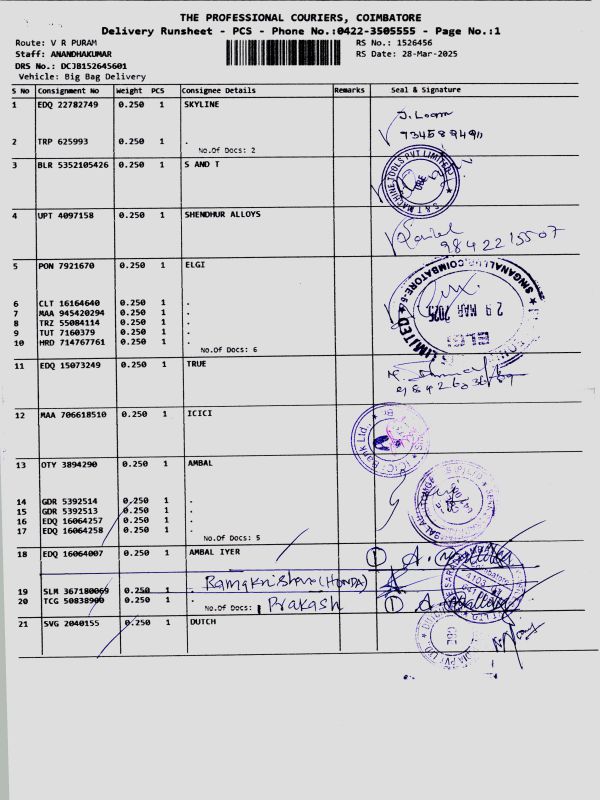 THE PROFESSIONAL COURIERS, COIMBATORE
Delivery Runsheet - PCS - Phone No.:0422-3505555 - Page No.:1
Route: V R PURAM RS No.: 1526456
Staff: ANANDHAKUMAR RS Date: 28-Mar-2025
DRS No.: DCJB152645601
Vehicle: Big Bag Delivery
S No Consignment No Weight PCS Consignee Details Remarks Seal & Signature
1 EDQ 22782749 0.250 1 SKYLINE
2 TRP 625993 0.250 1 .
No.Of Docs: 2
3 BLR 5352105426 0.250 1 S AND T
S & T MACHINE TOOLS PVT LIMITED
CBE
4 UPT 4097158 0.250 1 SHENDHUR ALLOYS
9842215507
5 PON 7921670 0.250 1 ELGI
SINGANALLUR, COIMBATORE-5
29 MAR 2025
ELGI
LIMITED
6 CLT 16164640 0.250 1 .
7 MAA 945420294 0.250 1 .
8 TRZ 55084114 0.250 1 .
9 TUT 7160379 0.250 1 .
10 HRD 714767761 0.250 1 .
No.Of Docs: 6
11 EDQ 15073249 0.250 1 TRUE
12 MAA 706618510 0.250 1 ICICI
ICICI Bank Ltd.,
13 OTY 3894290 0.250 1 AMBAL
14 GDR 5392514 0.250 1 .
15 GDR 5392513 0.250 1 .
16 EDQ 16064257 0.250 1 .
17 EDQ 16064258 0.250 1 .
No.Of Docs: 5
18 EDQ 16064007 0.250 1 AMBAL IYER
Ramakrishna (HONDA)
19 SLM 367180069 0.250 1 .
20 TCG 50838900 0.250 1 .
No.Of Docs: 1 Prakash
21 SVG 2040155 0.250 1 DUTCH